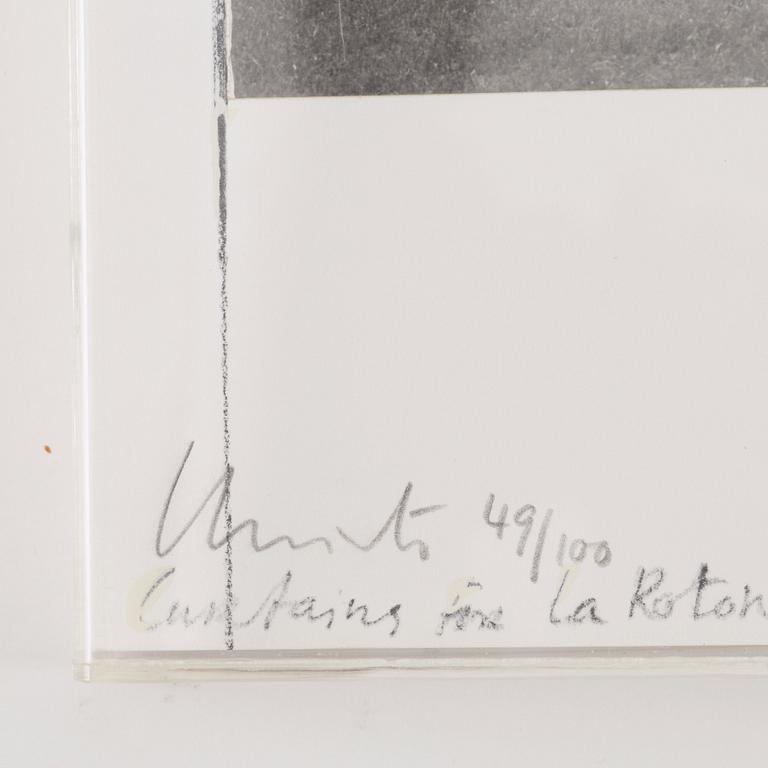 Christo 49/100
Curtains for La Roton